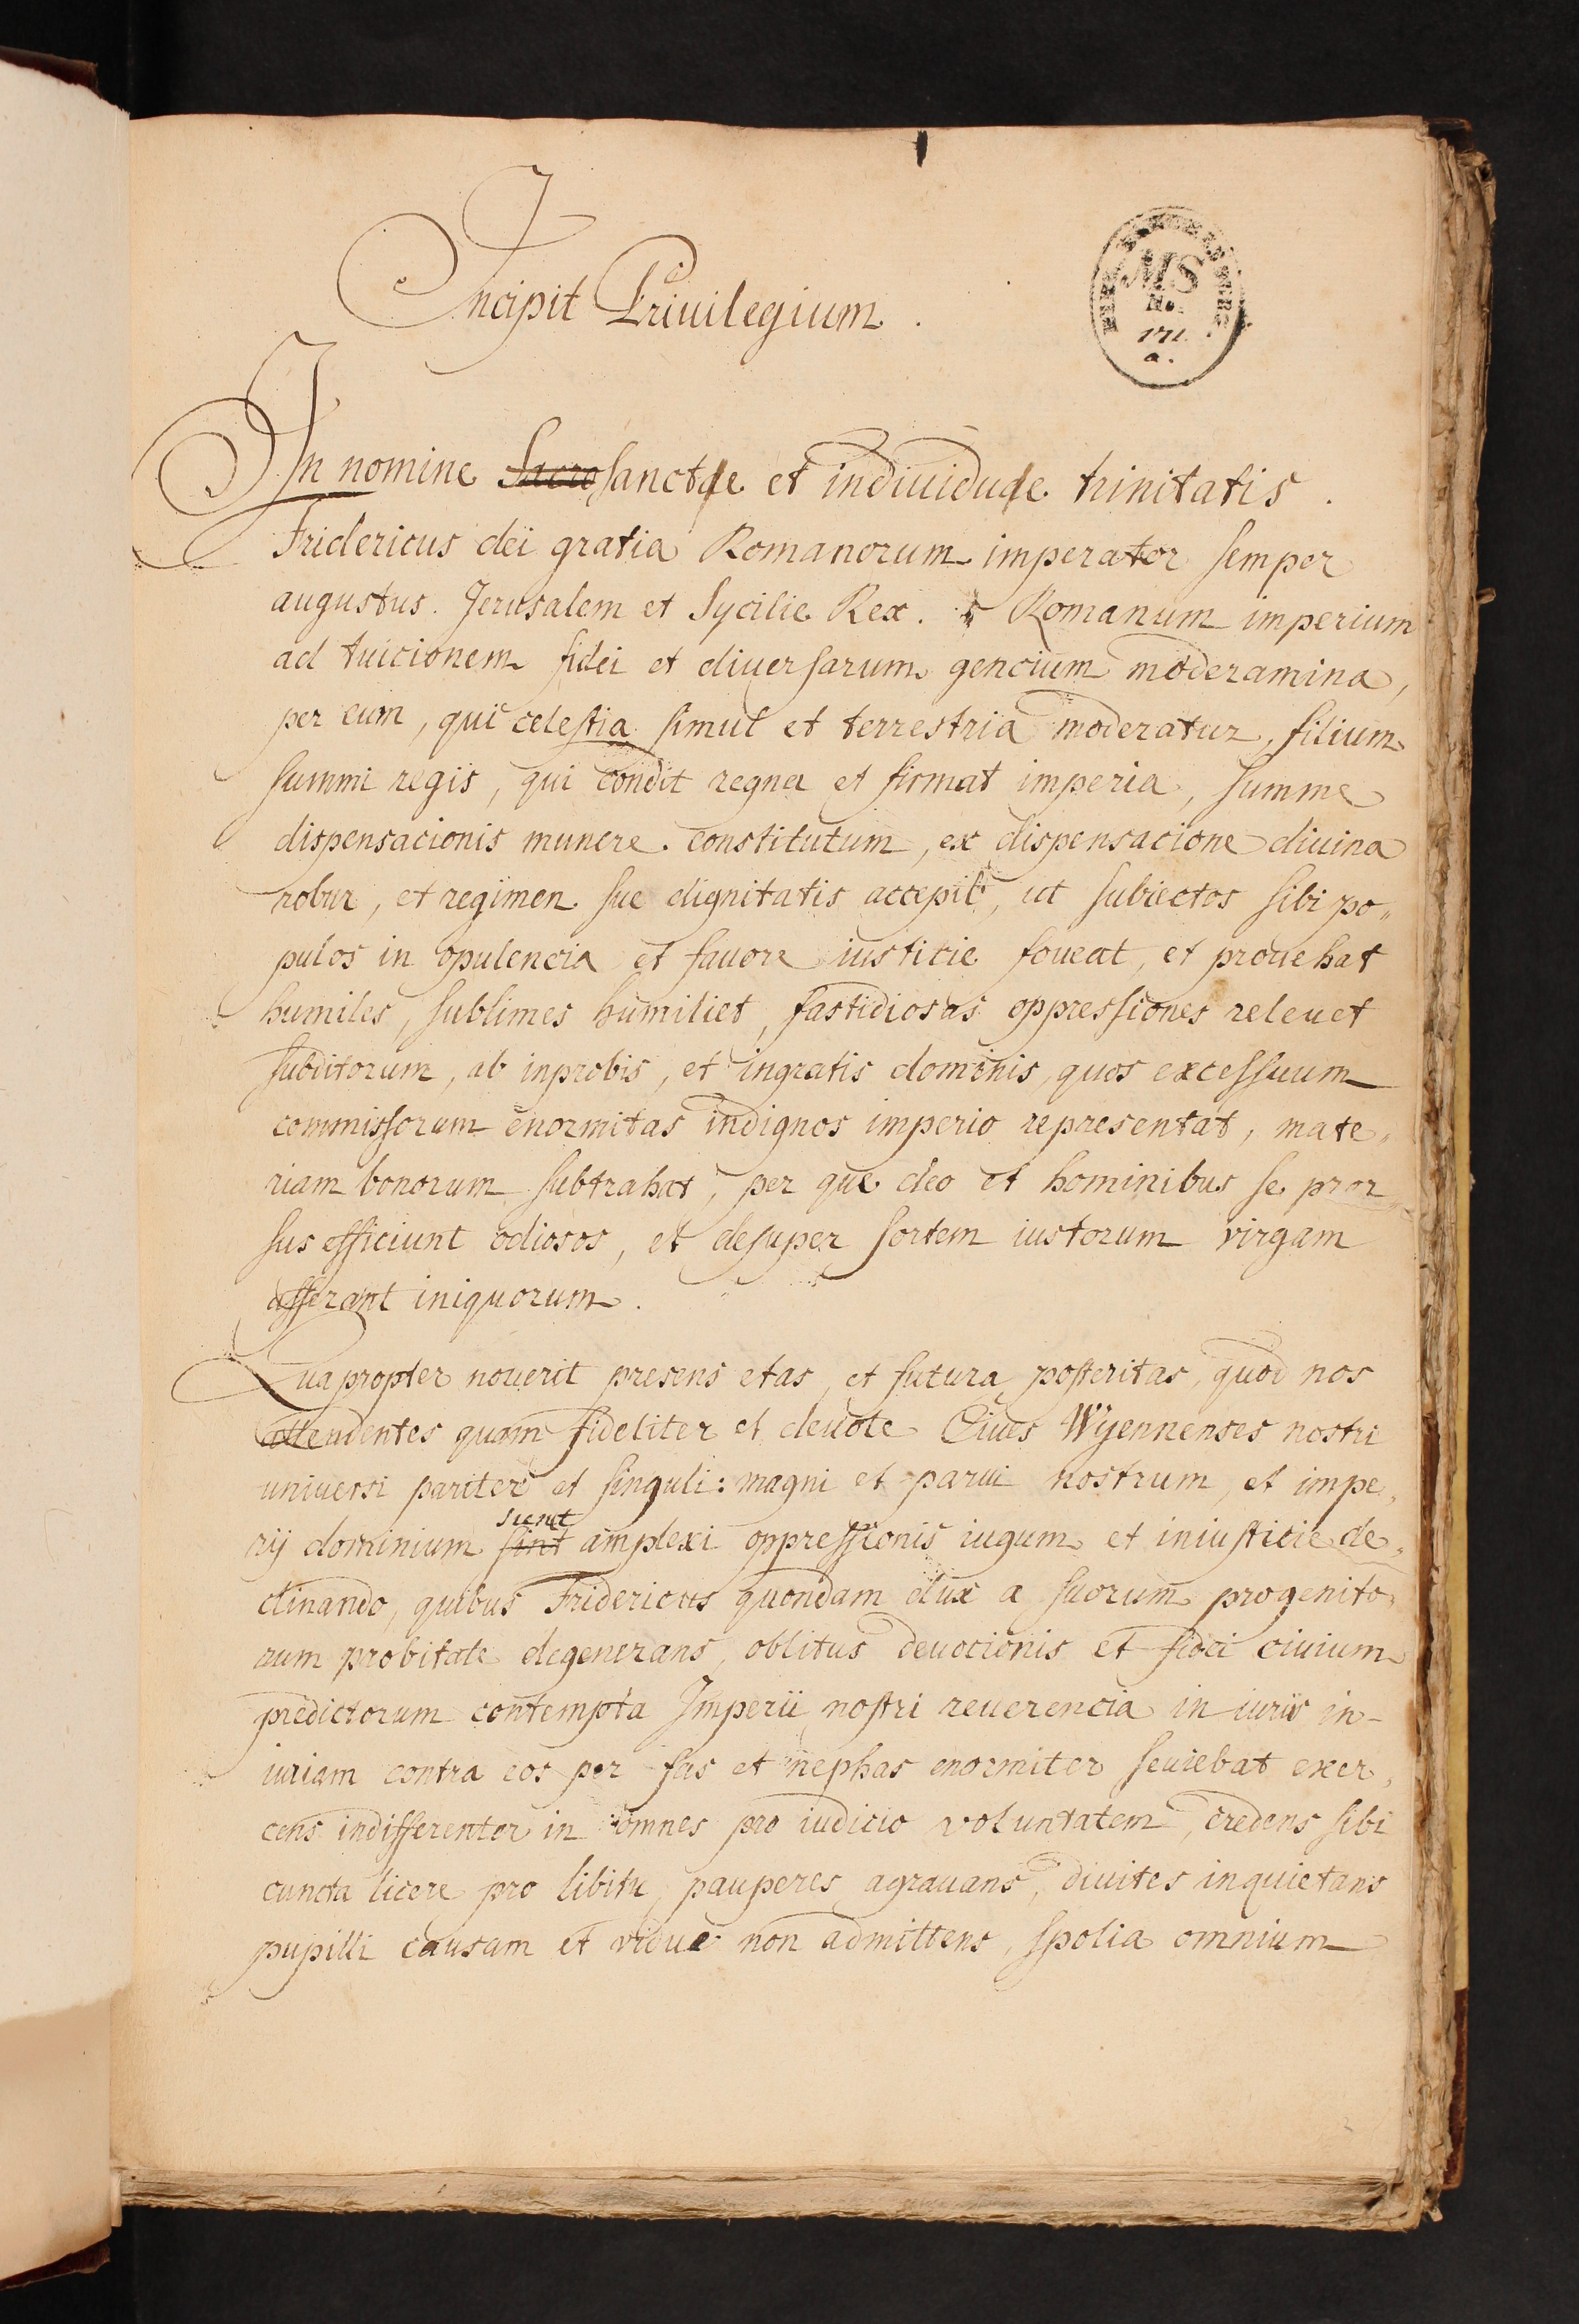 Incipit Priuilegium.
MS
No.
171.
a.
In nomine Sacrosanctae et indiuiduae trinitatis.
Fridericus dei gratia Romanorum imperator semper
augustus. Jerusalem et Sycilie Rex. Romanum imperium
ad tuicionem fidei et diuersarum gencium moderamina,
per eum, qui celestia simul et terrestria moderatur, filium
summi regis, qui condit regna et firmat imperia, summe
dispensacionis munere constitutum, ex dispensacione diuina
robur, et regimen sue dignitatis accepit, ut subiectos sibi po„
pulos in opulencia et fauore iusticie foueat, et prouehat
humiles, sublimes humiliet, fastidiosas oppressiones releuet
subditorum, ab inprobis, et ingratis dominis, quos excessuum
commissorum enormitas indignos imperio representat, mate„
riam bonorum subtrahat, per que deo et hominibus se pror„
sus efficiunt odiosos, et desuper sortem iustorum virgam
afferant iniquorum.
Quapropter nouerit presens etas, et futura posteritas, quod nos
attendentes quam fideliter et deuote Ciues Wyennenses nostri
universi pariter et singuli: magni et parui nostrum, et impe„
sicut
rij dominium sint amplexi oppressionis iugum et iniusticie de„
clinando, quibus Fridericus quondam dux a suorum progenito„
rum probitate degenerans, oblitus deuocionis et fidei ciuium
predictorum contempta Imperii nostri reuerencia in iuris in-
iuriam contra eos per fas et nephas enormiter seuiebat exer„
cens indifferenter in omnes pro iudicio voluntatem, credens sibi
cuncta licere pro libitu, pauperes agrauans, diuites inquietans
pupilli causam et vidue non admittens, spolia omnium